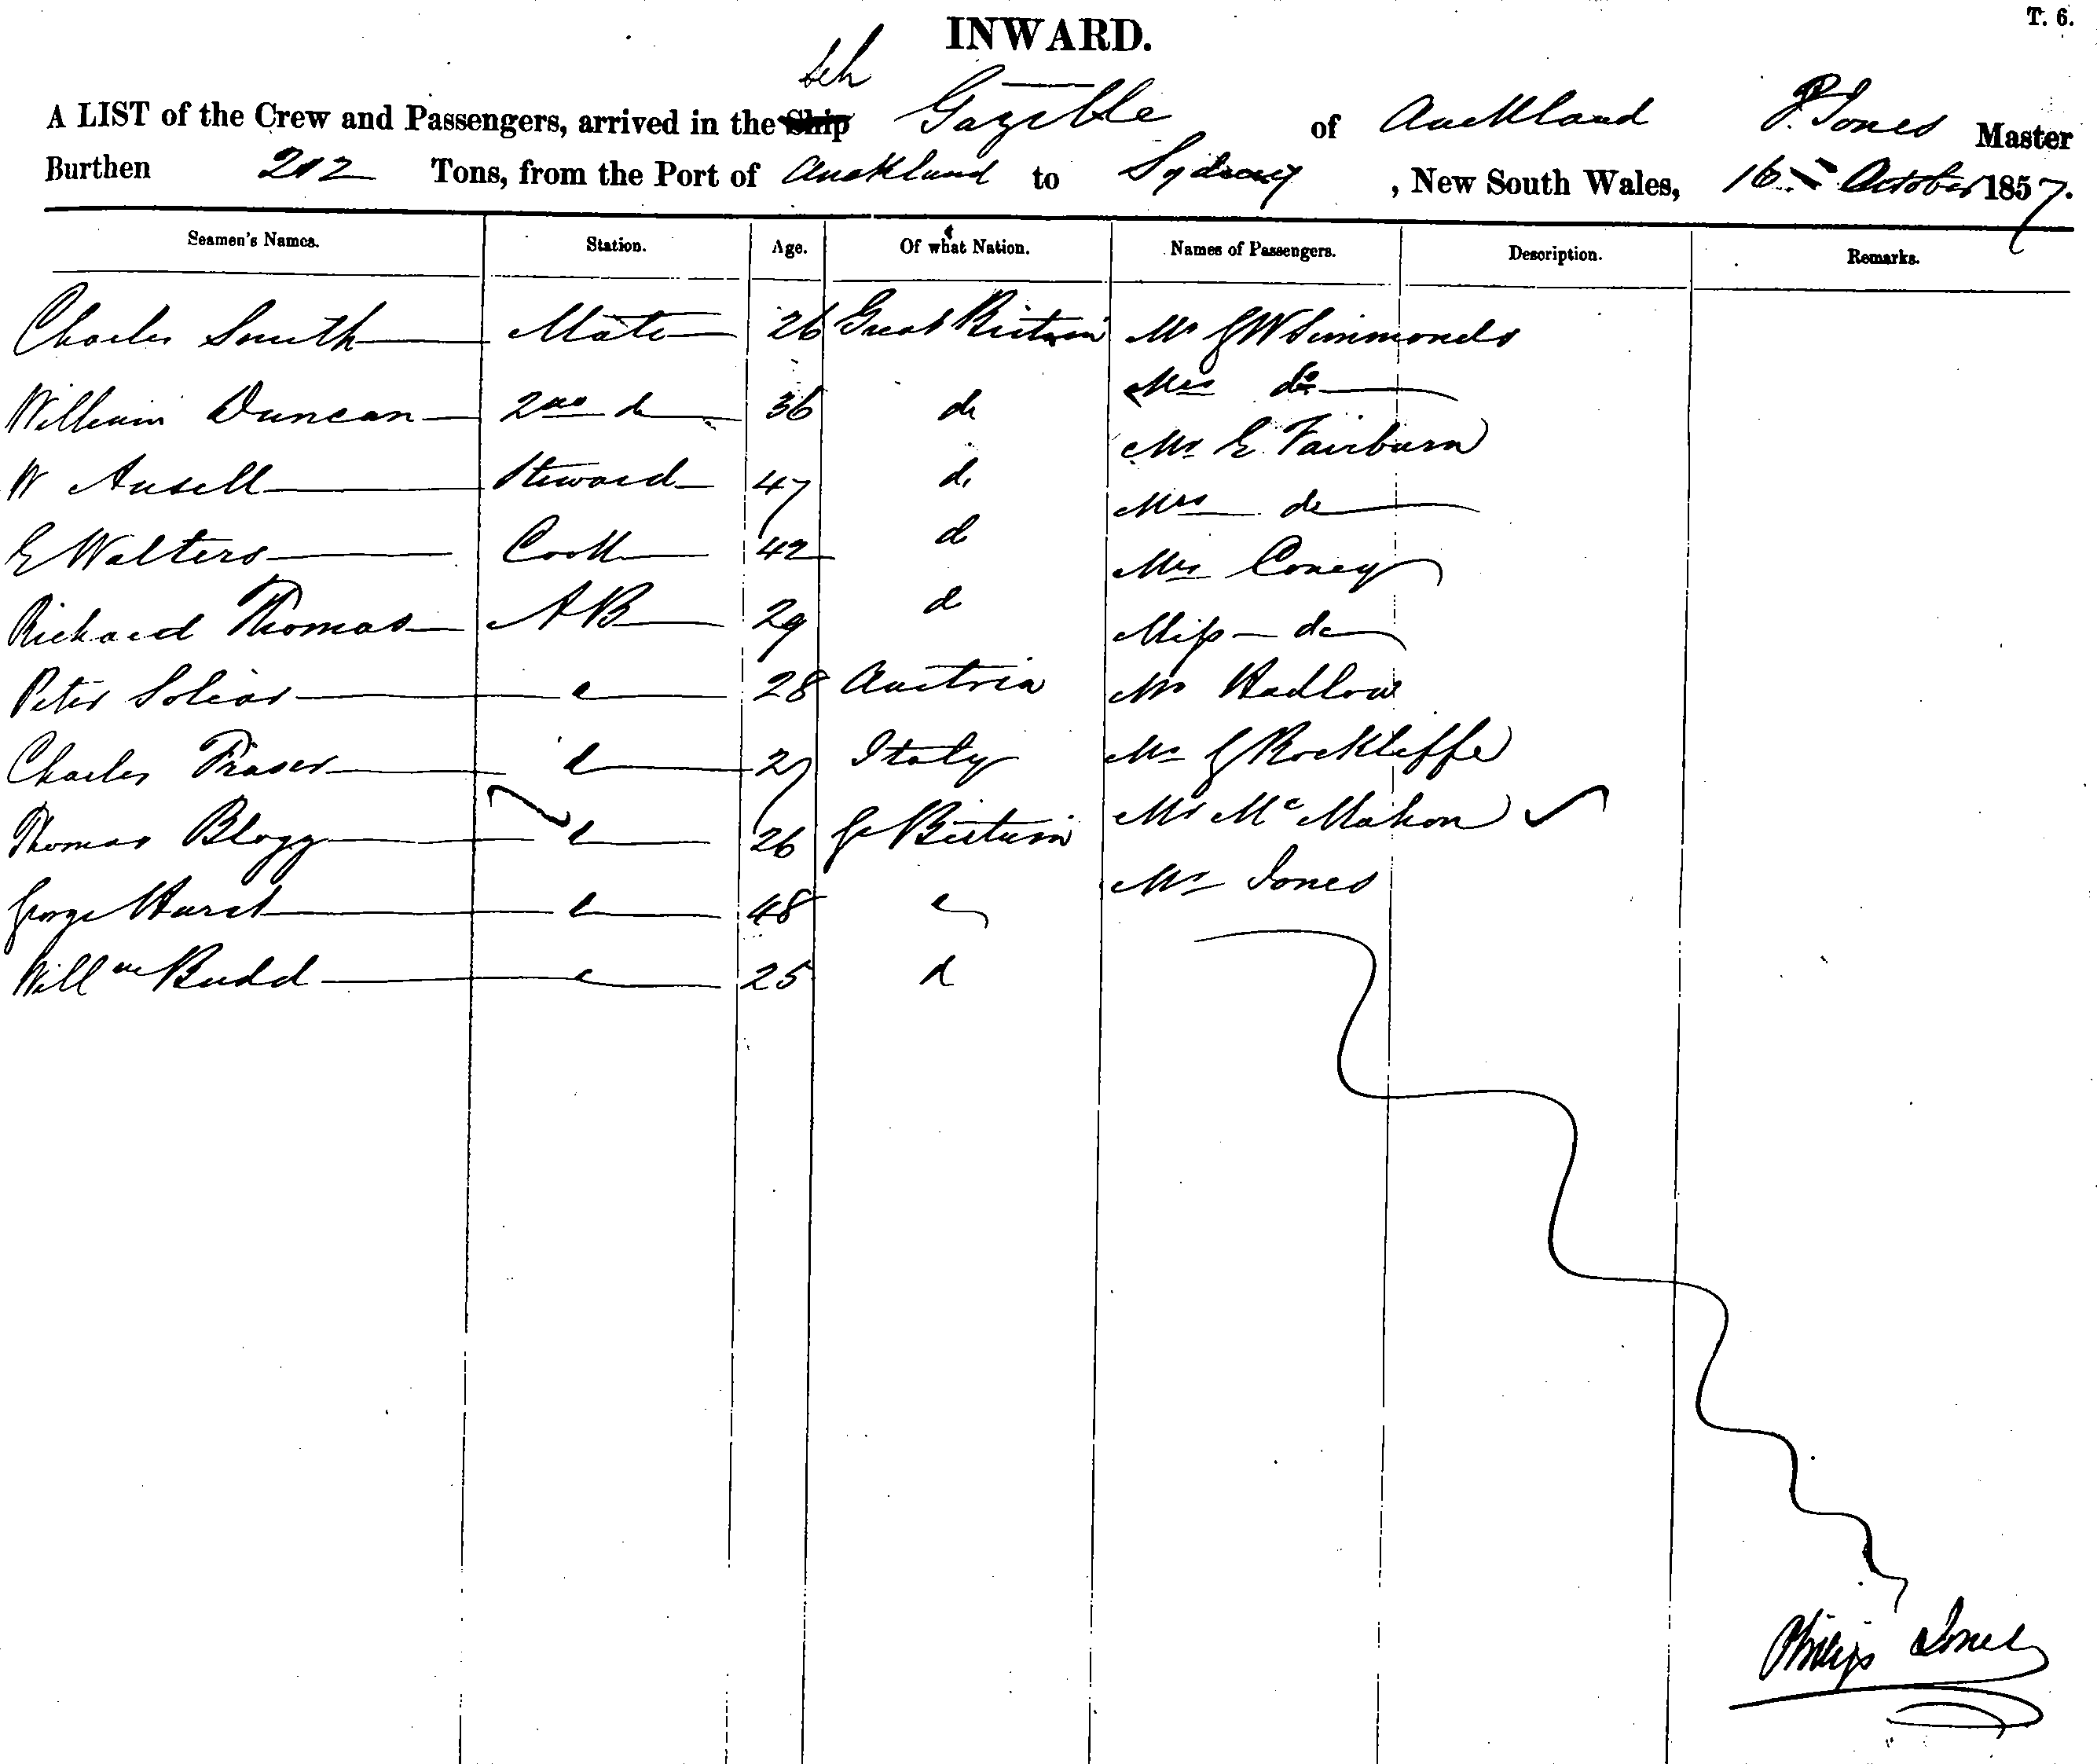 T. 6.
INWARD.
Sch
A LIST of the Crew and Passengers, arrived in the Ship Gazelle of Auckland P. Jones Master
Burthen 212 Tons, from the Port of Auckland to Sydney, New South Wales, 16th October 1857.
Seamen's Names. Station. Age. Of what Nation. Names of Passengers. Description. Remarks.
Charles Smith Mate 26 Great Britain Mr G W Simmonds
Mrs do
William Duncan 2nd do 36 do
Mr E Fairburn
W Ansell Steward 47 do
Mrs do
E Walters Cook 42 do
Mrs Coney
Richard Thomas AB 29 do
Miss do
Peter 28 Austria Mr Hadlow
Charles Fraser do 27 Italy Mr G Rockliffe
Thomas Blogg do 26 Gt Britain Mr McMahon ✓
Mr Jones
George Hurst do 48 do
Willm Budd do 25 do
Philip Jones